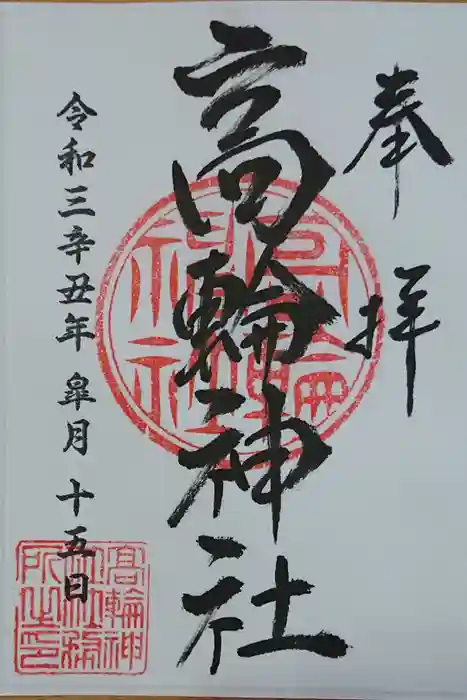 奉拝
高輪神社
令和三辛丑年皐月十五日
高輪神社
髙輪神社社務所之印